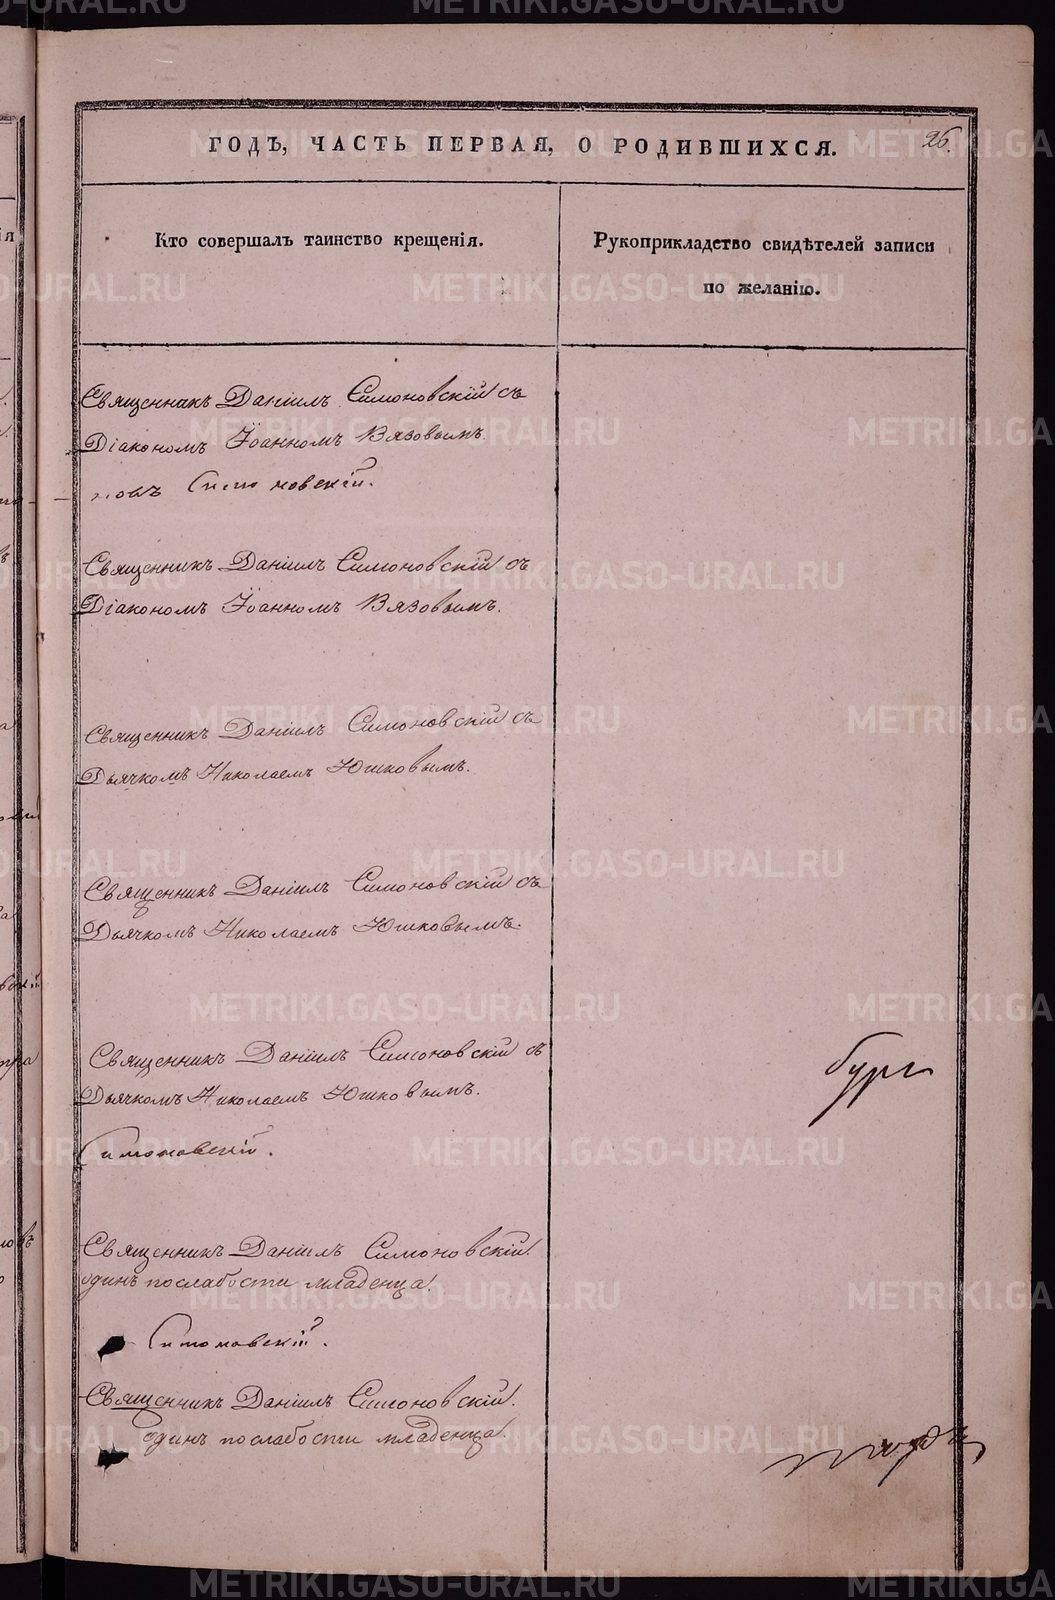 ГОДЪ, ЧАСТЬ ПЕРВАЯ, О РОДИВШИХСЯ.
26.
Кто совершалъ таинство крещенія.
Рукоприкладство свидѣтелей записи
по желанію.
Священникъ Даніилъ Симоновскій съ
Діакономъ Іоанномъ Вязовымъ.
Симоновскій.
Священникъ Даніилъ Симоновскій съ
Діакономъ Іоанномъ Вязовымъ.
Священникъ Даніилъ Симоновскій съ
Дьячкомъ Николаемъ Юшковымъ.
Священникъ Даніилъ Симоновскій съ
Дьячкомъ Николаемъ Юшковымъ.
Священникъ Даніилъ Симоновскій съ
Дьячкомъ Николаемъ Юшковымъ.
бург
Симоновскій.
Священникъ Даніилъ Симоновскій
одинъ по слабости младенца.
Симоновскій.
Священникъ Даніилъ Симоновскій.
одинъ по слабости младенца.
METRIKI.GASO-URAL.RU